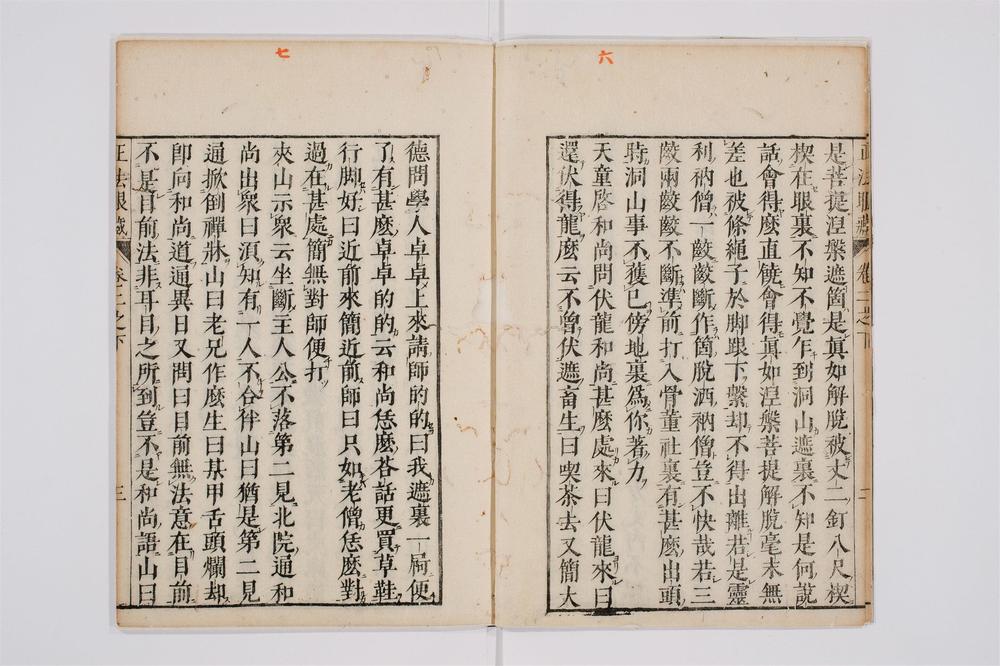 六
是菩提涅槃遮箇是眞如解脫被丈二釘八尺楔
楔在眼裏不知不覺乍到洞山遮裏不知是何說
話會得麼直饒會得眞如涅槃菩提解脫毫末無
差也被條繩子於脚跟下繫却不得出離若是靈
利衲僧一齩齩斷作箇脫洒衲僧豈不快哉若三
齩兩齩齩不斷準前打入骨董社裏有甚麼出頭
時洞山事不獲已傍地裏爲你著力
天童啓和尚問伏龍和尚甚麼處來曰伏龍來曰
還伏得龍麼云不曾伏遮畜生曰喫茶去又簡大
正法眼藏 卷二之下
七
德問學人卓卓上來請師的的曰我遮裏一屙便
了有甚麼卓卓的的云和尚恁麼荅話更買草鞋
行脚好曰近前來簡近前師曰只如老僧恁麼對
過在甚處簡無對師便打
夾山示衆云坐斷主人公不落第二見北院通和
尚出衆曰須知有一人不合伴山曰猶是第二見
通掀倒禪牀山曰老兄作麼生曰某甲舌頭爛却
卽向和尚道通異日又問曰目前無法意在目前
不是目前法非耳目之所到豈不是和尚語山曰
正法眼藏 卷二之下 三